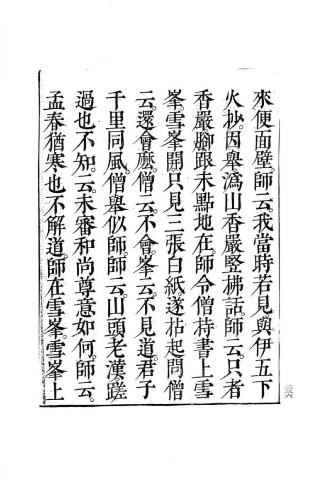 來便面壁。師云。我當時若見與伊五下
火抄。因舉溈山香嚴竪拂話。師云。只者
香嚴腳跟未點地在。師令僧持書上雪
峯。雪峯開只見三張白紙。遂拈起問僧
云。還會麽。僧云。不會。峯云。不見道。君子
千里同風。僧舉似師。師云。山頭老漢蹉
過也不知。云。未審和尚尊意如何。師云。
孟春猶寒。也不解道。師在雪峯。雪峯上
三六